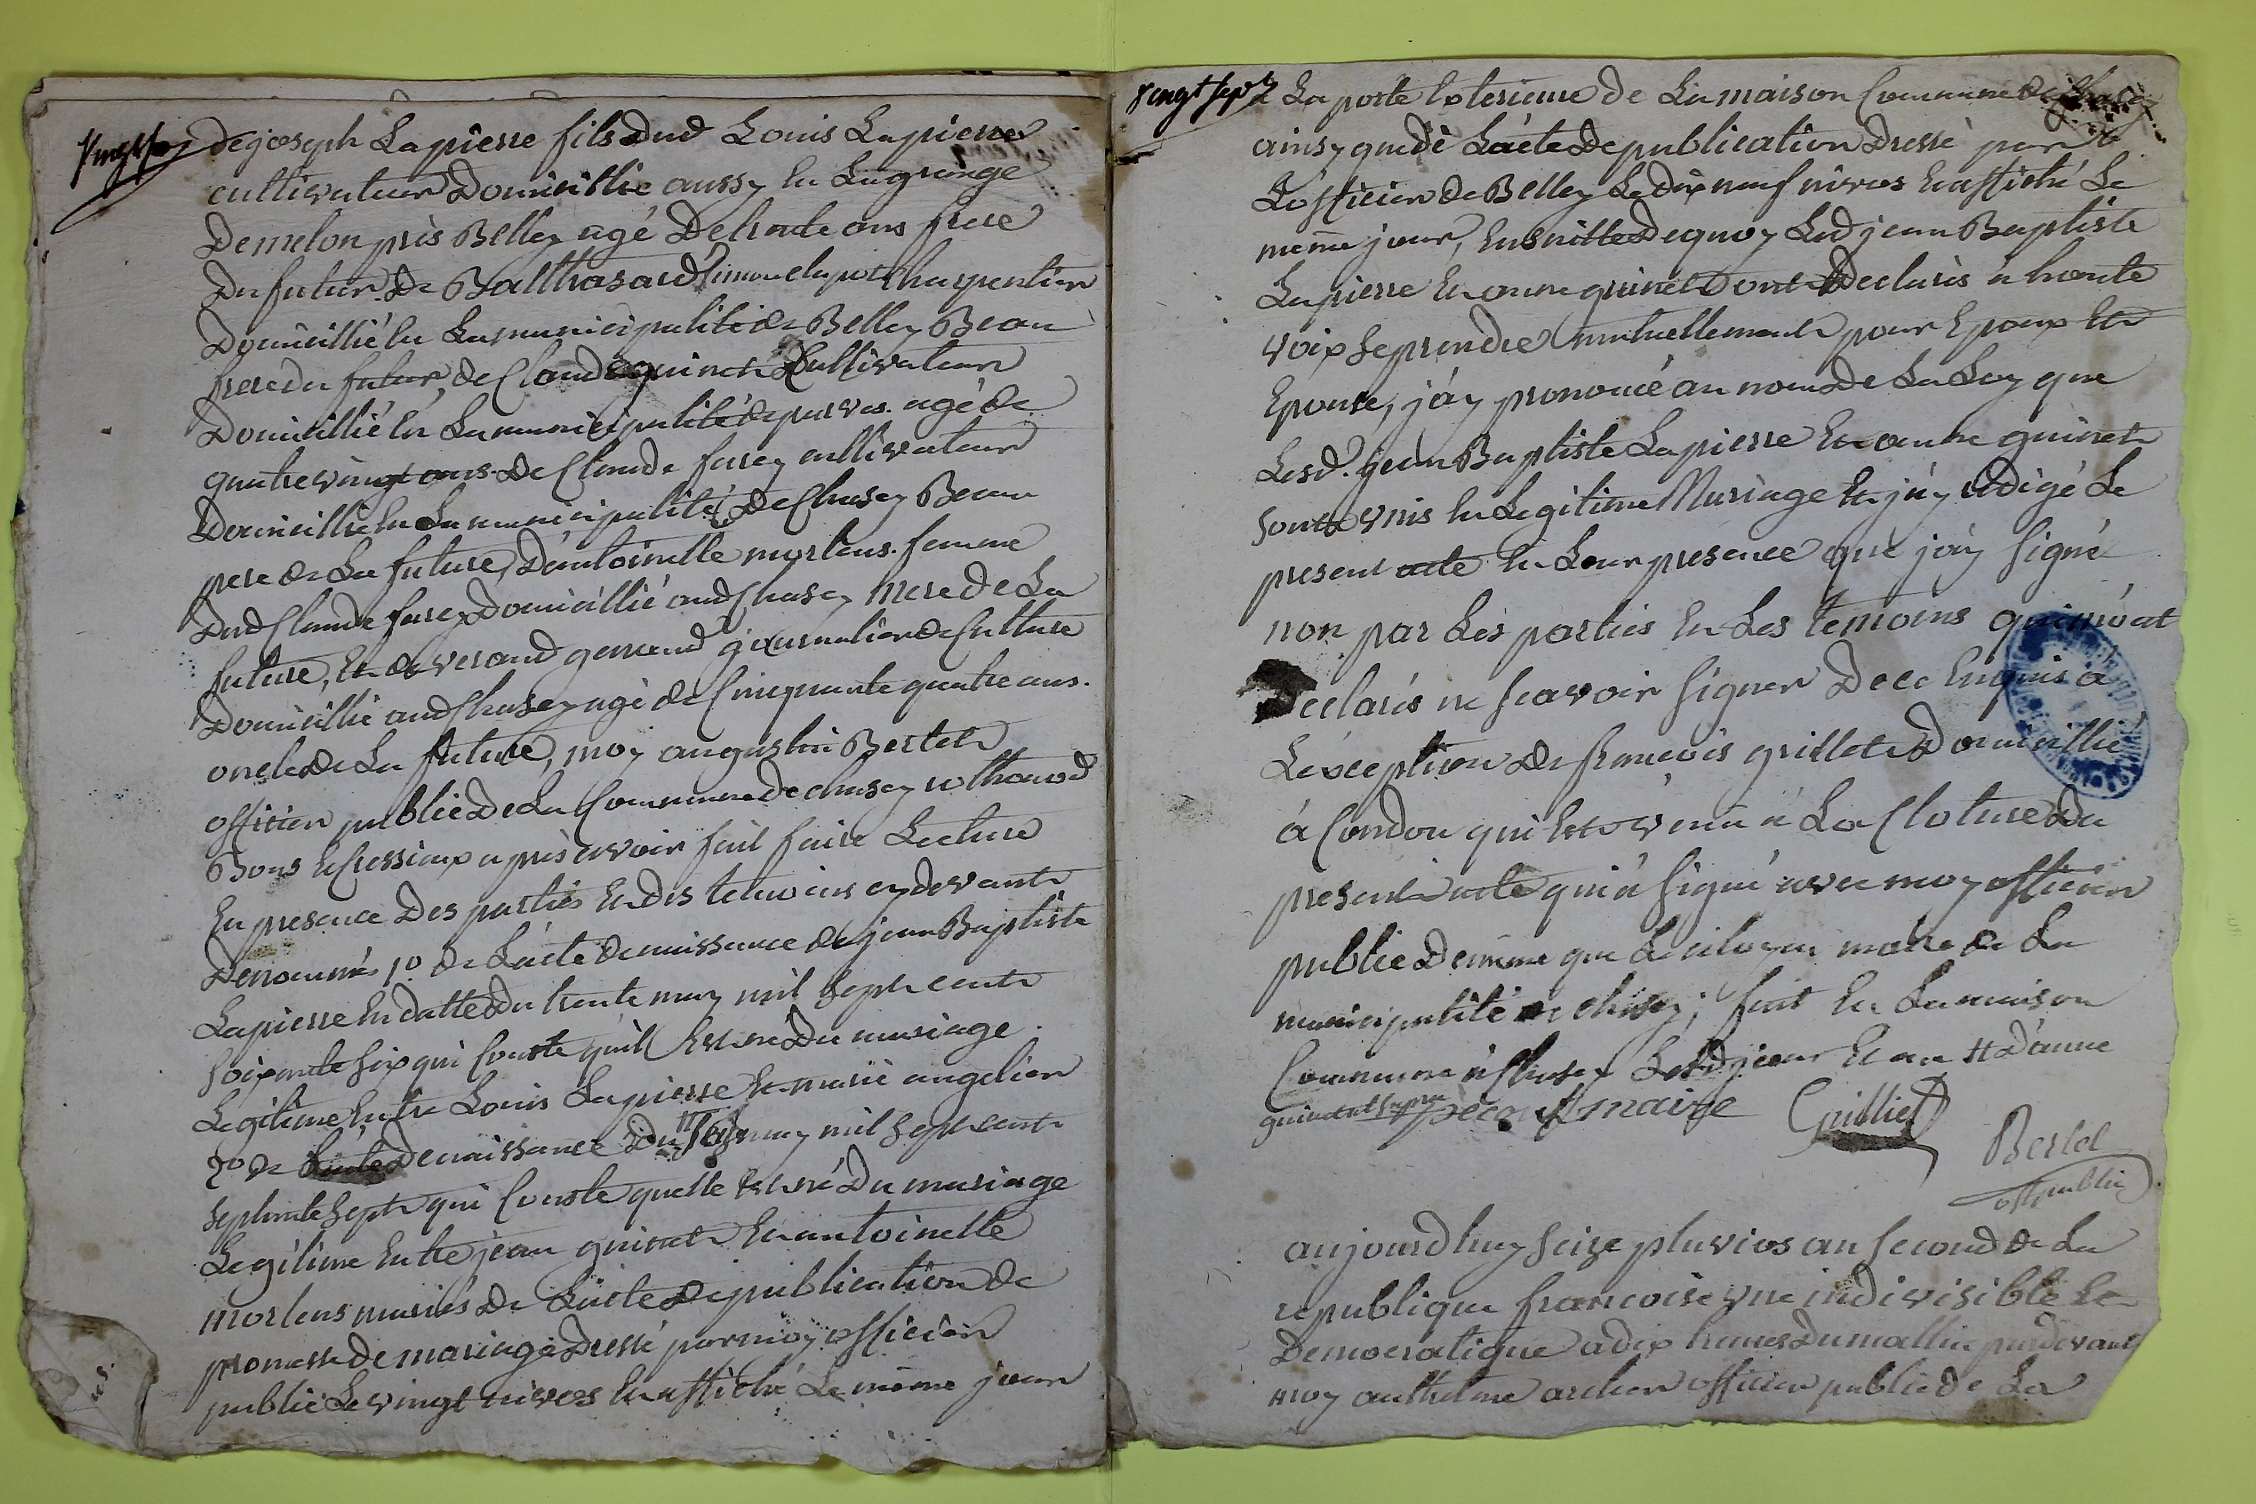 vingt six
de joseph Lapierre fils Dud Louis Lapierre
cultivateur Domicillié aussy En Lagrange
Demelon près Belley agé De trente ans frere
Du futur. De Balthasard charpentier
Domicillié En La municipalité de Belley Beau
frere du futur, de Claude quinet Cultivateur
Domicillié En La municipalité de parves. agé de
quatre vingt ans. De Claude furey cultivateur
Domicillié En La municipalité De Chasey Beau
pere de La future, D'antoinette mortens. femme
Dud Claude furey Domicillié aud Chasey Mere de La
future, Et de verand gerraud journalier de Culture
Domicillié aud Chasey agé de Cinquante quatre ans.
oncle de La future, moy augustin Bertet
officier public De La Commune de chasey rothonod
Bons Et Cressieux après avoir fait faire Lecture
En presence Des parties Et des temoins cy devant
Denommés 1º de L'acte de naissance de jean Baptiste
Lapierre En datte du trente may mil sept cent
soixante six qui Conste qu'il Est né Du mariage
Legitime Entre Louis Lapierre Et marie angelier
2º de L'acte De naissance Du may mil sept cent
septante sept qui Conste quelle Est né Du mariage
Legitime Entre jean quinet Et antoinette
mortens mariés De L'acte De publication de
promesse de mariage Dressé par moy officier
public Le vingt nivos Et affiché Le même jour
vingt sept
a La porte Exterieure de La maison Commune de Chasey
ainsy que de L'acte De publication Dressé par
L'officier de Belley Le dix neuf nivos Et affiché Le
meme jour, Ensuitte De quoy Led jean Baptiste
Lapierre Et anne quinet Dont Declarés a haute
voix se prendre mutuellement pour Epoux Et
Epouse, j'ay prononcé au nom De La Loy que
Lesd. jean Baptiste Lapierre Et anne quinet
sont unis En Legitime Mariage Et j'ay redigé Le
present acte En Leur presence que j'ay signé
non par Les parties Et Les temoins qui m'ont
Declarés ne scavoir signer De ce Enquis à
L'exception de françois grillet Domicillié
à Condon qui Est venu a La Cloture Du
present acte qui a signé avec moy officier
public De meme que Le citoyen maire de La
municipalité de chasey; fait En La maison
Commune a Chasey Lesd jour Et an D'anne
quinet ut supra maire Grilliet
Bertet
off public
aujourd'huy seize pluvios an second de La
republique françoise une indivisible Et
Democratique a dix heures Du mattin pardevant
moy anthelme archer officier public de La